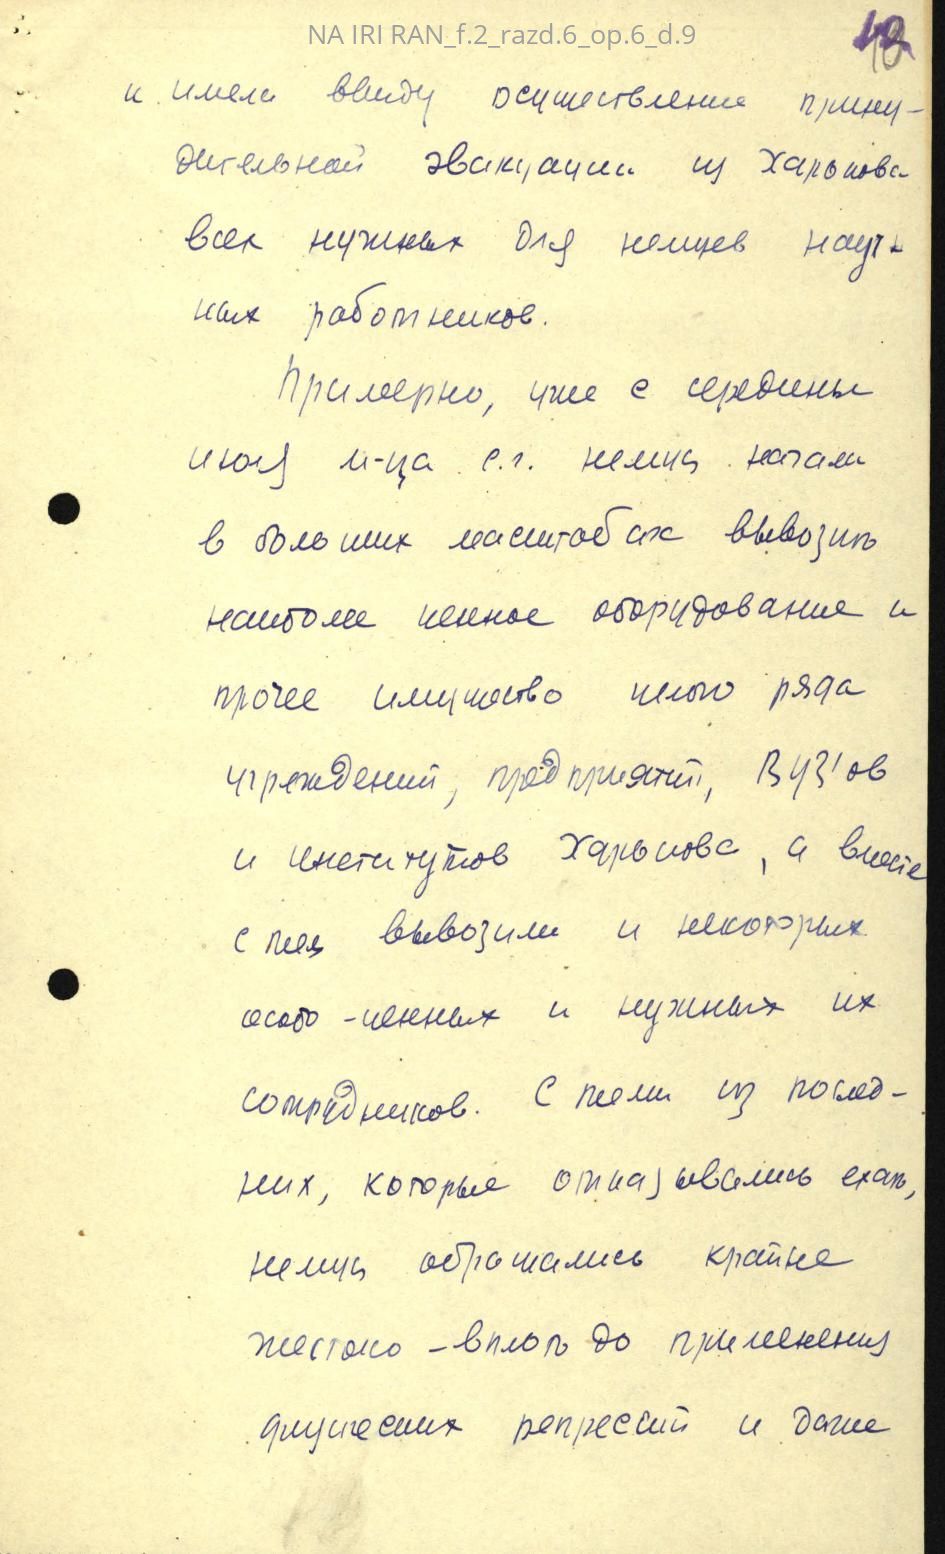 NA IRI RAN_f.2_razd.6_op.6_d.9
и имели ввиду осуществление прину-
дительной эвакуации из Харькова
всех нужных для немцев науч-
ных работников.
Примерно, уже с середины
июля м-ца с.г. немцы начали
в больших масштабах вывозить
наиболее ценное оборудование и
прочее имущество целого ряда
учреждений, предприятий, ВУЗ'ов
и институтов Харькова, а вместе
с тем вывозили и некоторых
особо-ценных и нужных их
сотрудников. С теми из послед-
них, которые отказывались ехать,
немцы обращались крайне
жестоко - вплоть до применения
физических репрессий и даже